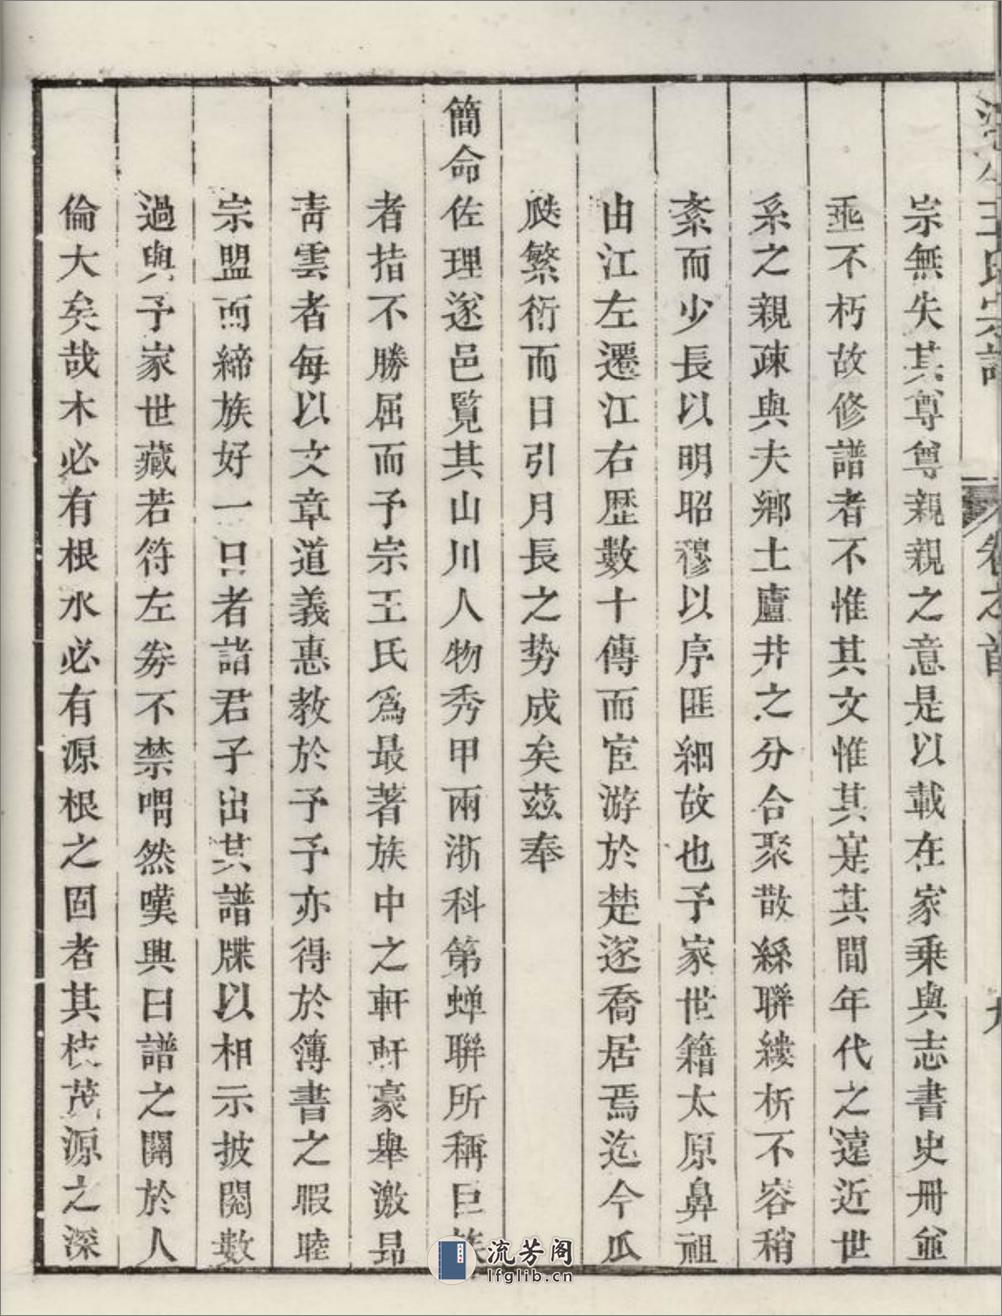 王氏宗譜 卷之首 九
宗無失其尊尊親親之意是以載在家乘與志書史冊並
垂不朽故修譜者不惟其文惟其寔其間年代之遠近世
系之親疎與夫鄉土廬井之分合聚散絲聯縷析不容稍
紊而少長以明昭穆以序匪細故也予家世籍太原鼻祖
由江左遷江右歷數十傳而宦游於楚遂喬居焉迄今瓜
瓞繁衍而日引月長之势成矣茲奉
簡命佐理遂邑覽其山川人物秀甲兩浙科第蟬聯所稱巨族
者拮不勝屈而予宗王氏為最著族中之軒軒豪舉激昂
靑雲者每以文章道義惠教於予予亦得於簿書之暇睦
宗盟而締族好一日者諸君子出其譜牒以相示披閱數
過與予家世藏若符左劵不禁喟然嘆興曰譜之關於人
倫大矣哉木必有根水必有源根之固者其枝茂源之深
流芳阁
lfglib.cn